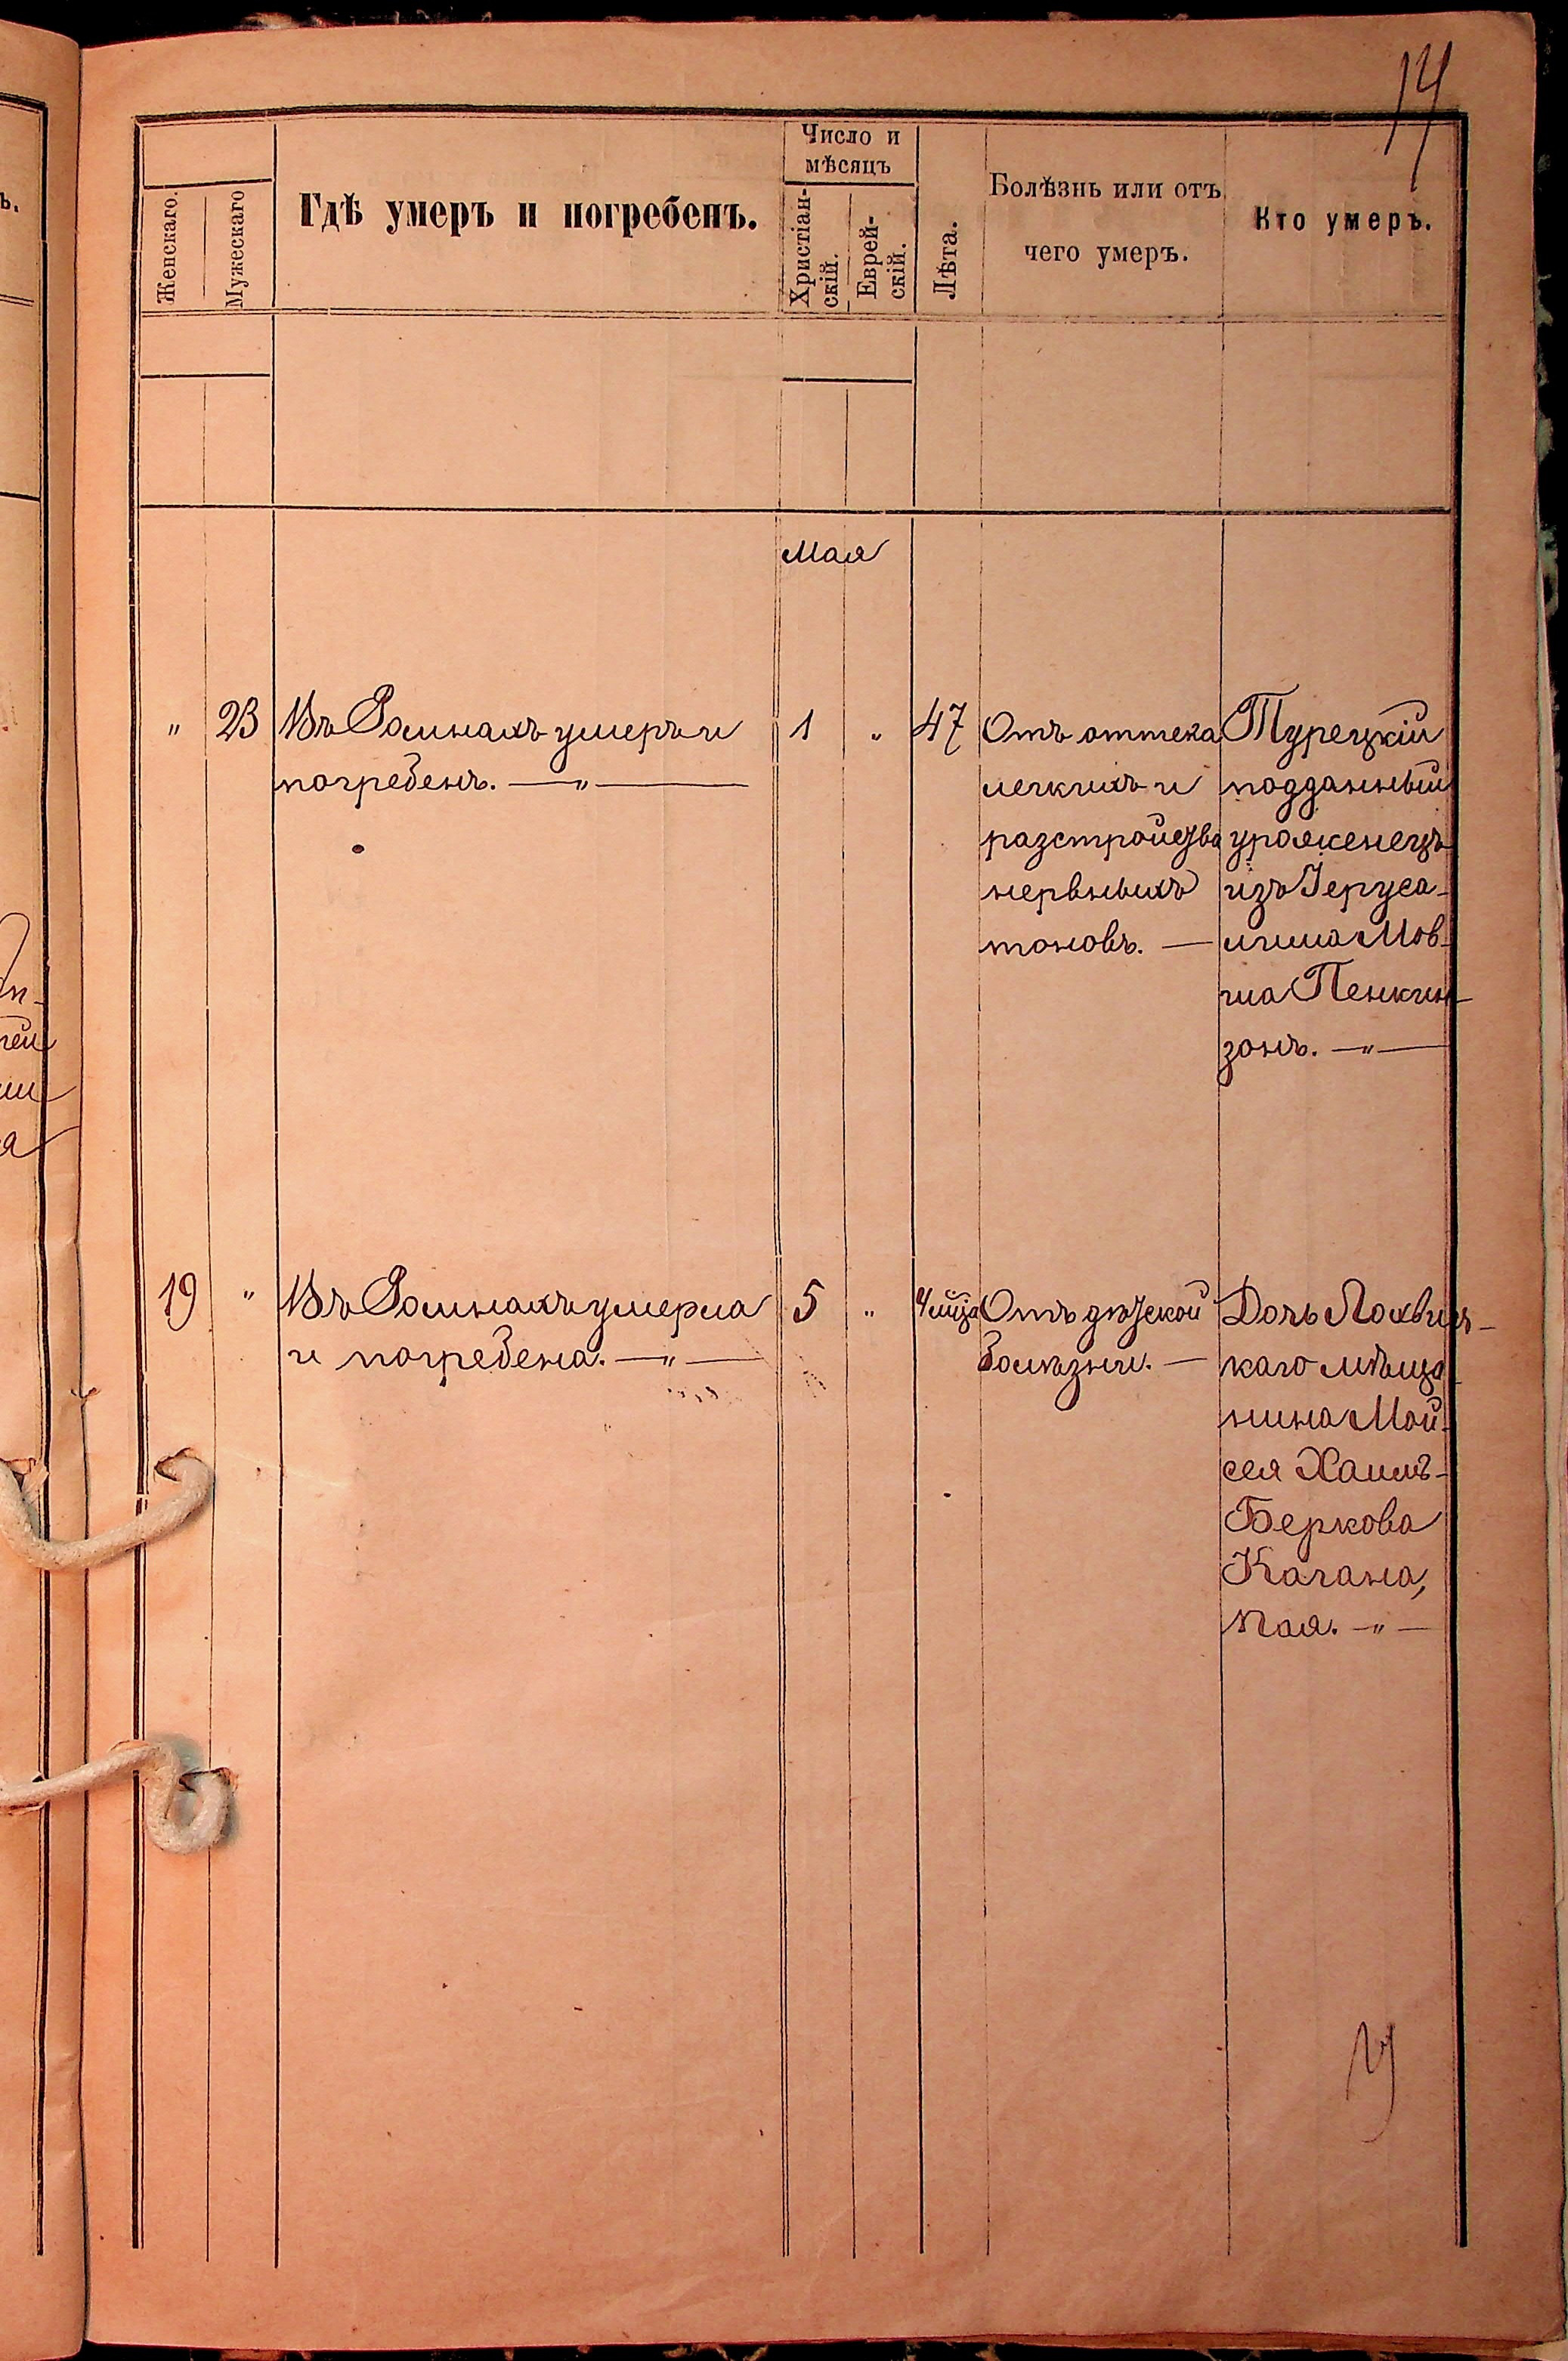 14
Женскаго.
Мужескаго
Гдѣ умеръ и погребенъ.
Число и
мѣсяцъ
Христіан-
скій.
Еврей-
скій.
Лѣта.
Болѣзнь или отъ
чего умеръ.
Кто умеръ.
Мая
" 23 Въ Ромнахъ умеръ и
погребенъ. — " —
1 " 47
Отъ оттека
легкихъ и
разстройства
нервныхъ
тоновъ. —
Турецкій
подданный
уроженецъ
изъ Іеруса-
лима Мов-
ша Пенкин-
зонъ. — " —
19 " Въ Ромнахъ умерла
и погребена. — " —
5 "
Отъ дѣтской
болѣзни. —
Дочь Лохвиц-
каго мѣща-
нина Мой-
сея Хаимъ-
Беркова
Кагана,
— " —
ъ.